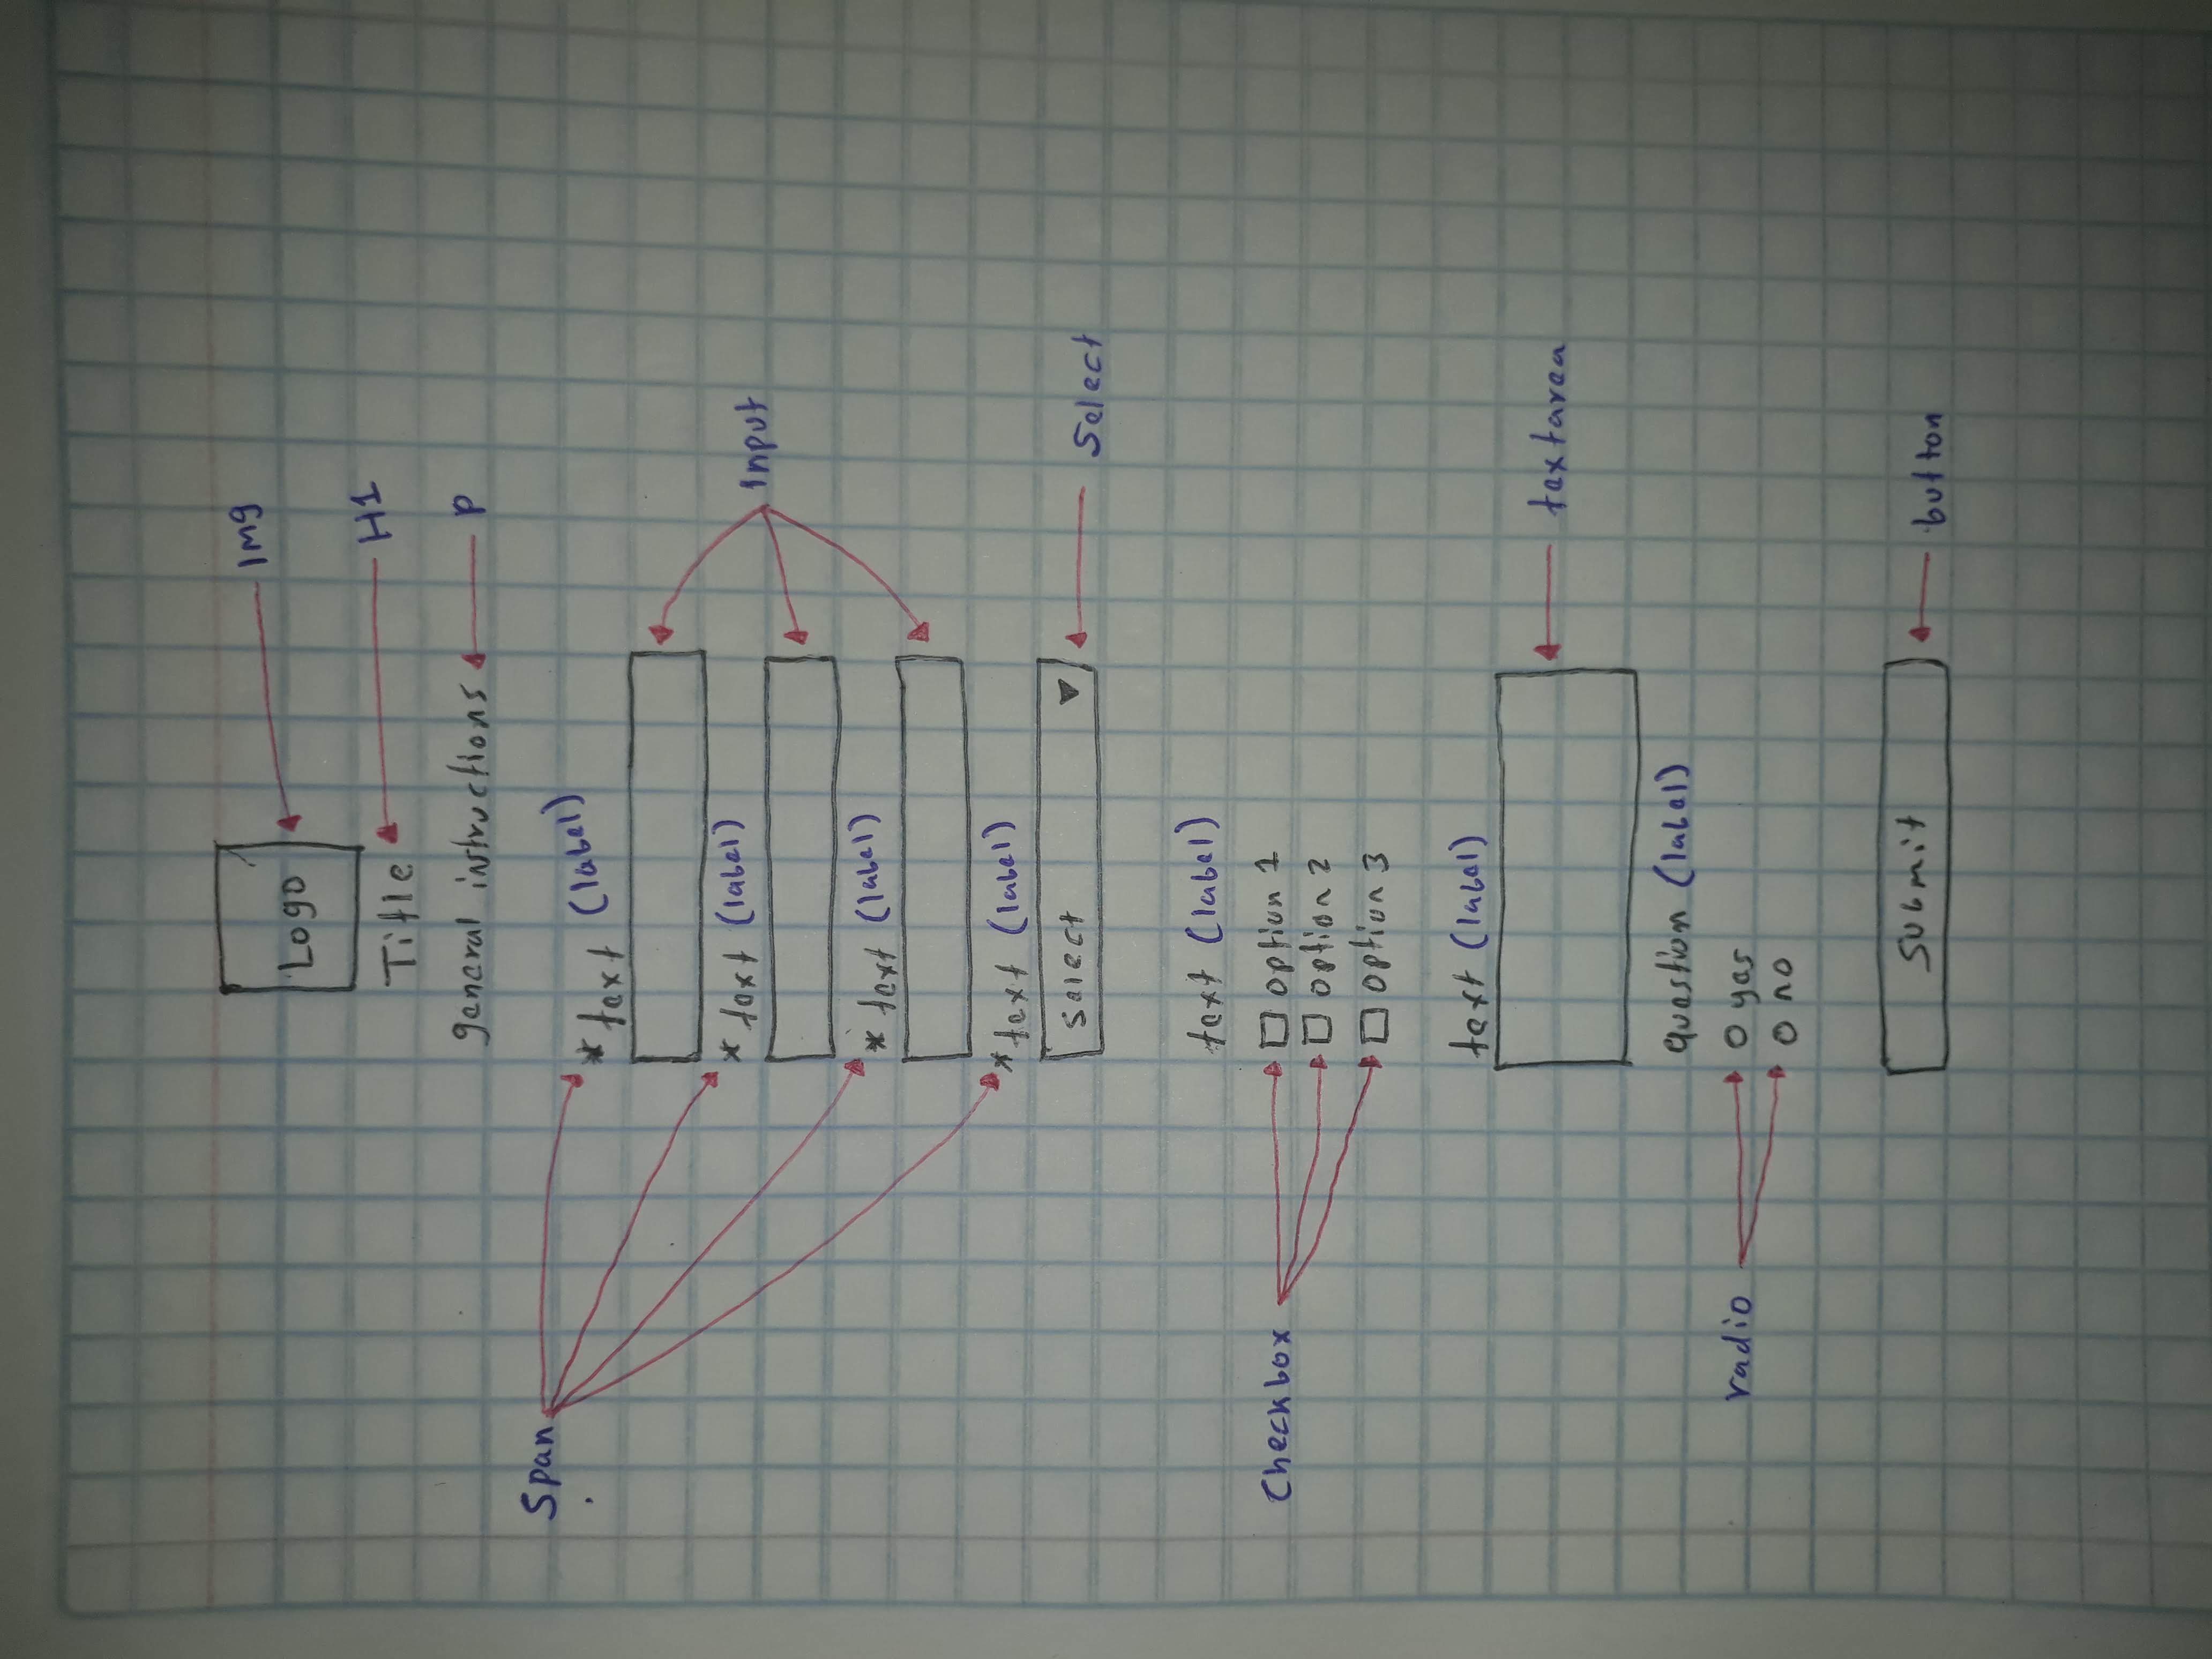 Img
Logo
H1
Title
general instructions
P
Span
* text (label)
* text (label)
Input
* text (label)
* text (label)
Select
Select
text (label)
Checkbox
option 1
option 2
option 3
text (label)
textarea
question (label)
radio
yes
no
Submit
button